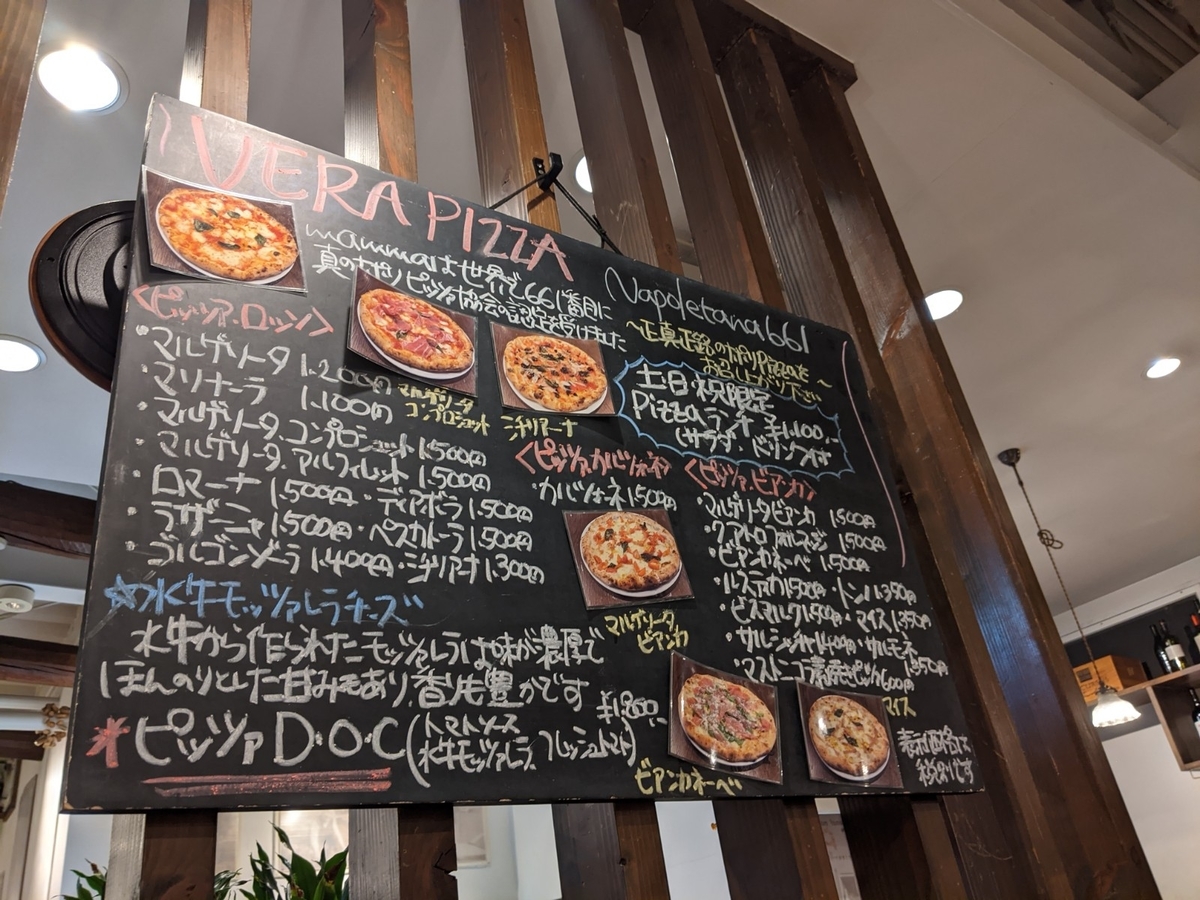 VERA PIZZA
Napoletana 661
mammaは世界で661番目に
真のナポリピッツァ協会の認定を受けました
~正真正銘のナポリPizzaを
お召し上がり下さい~
<ピッツァ・ロッソ>
・マルゲリータ 1.200円
・マリナーラ 1.100円
・マルゲリータ.コンプロシュット 1.500円
・マルゲリータ.アルフィレット 1.500円
・ロマーナ 1.500円 ・ディアボラ 1.500円
・ラザーニャ 1.500円 ・ペスカトーラ 1.500円
・ゴルゴンゾーラ 1.400円 ・シチリアーナ 1.300円
マルゲリータ
コンプロシュット
シチリアーナ
土日・祝限定
Pizzaランチ ¥1,100.-
(サラダ・ドリンク付
<ピッツァ.カルツォーネ>
・カルツォーネ 1.500円
<ピッツァ.ビアンカ>
・マルゲリータビアンカ 1.500円
・クアトロフォルマッジ 1.500円
・ビアンカネーベ 1.500円
・ルスティカ 1.500円 ・トンノ 1.350円
・ビスマルク 1.500円 ・マイス 1.350円
・サルシッチャ 1.400円 ・サルモネ 1.350円
・マストニコラ 600円
マルゲリータ
ビアンカ
☆水牛モッツァレラチーズ
水牛から作られたモッツァレラは味が濃厚で
ほんのりとした甘みもあり、香りも豊かです
*ピッツァ D・O・C (トマトソース
水牛モッツァレラ、フレッシュトマト)
¥1,800.-
ビアンカネーベ
マイス
表示価格は
税別です